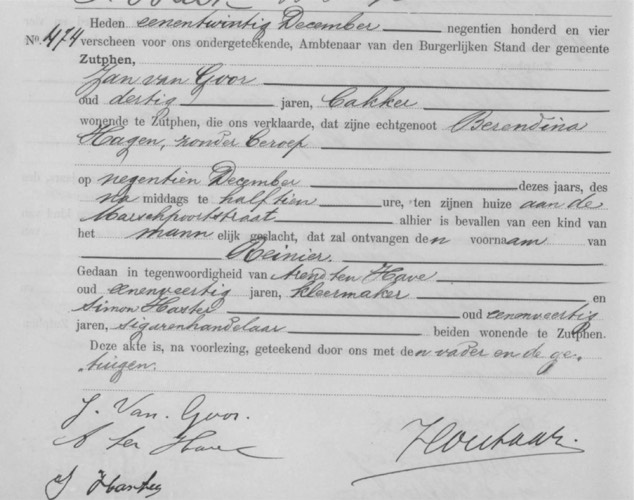 Heden eenentwintig December negentien honderd en vier
No. 474 verscheen voor ons ondergeteekende, Ambtenaar van den Burgerlijken Stand der gemeente
Zutphen,
Jan van Goor
oud dertig jaren, Bakker
wonende te Zutphen, die ons verklaarde, dat zijne echtgenoot Berendina
Hagen, zonder beroep
op negentien December dezes jaars, des
na middags te half tien ure, ten zijnen huize aan de
Marschpoortstraat alhier is bevallen van een kind van
het mann elijk geslacht, dat zal ontvangen den voornaam van
Reinier.
Gedaan in tegenwoordigheid van Arend ten Have
oud eenenveertig jaren, kleermaker en
Simon oud eenenveertig
jaren, sigarenhandelaar beiden wonende te Zutphen.
Deze akte is, na voorlezing, geteekend door ons met den vader en de ge-
tuigen.
J. Van. Goor.
A ten Have
S